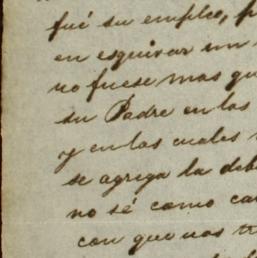 fué su empleo, p
en esquivar un
no fuese mas qu
su Padre en las
y en las cuales
se agrega la deb
no sé como ca
con que nos tr